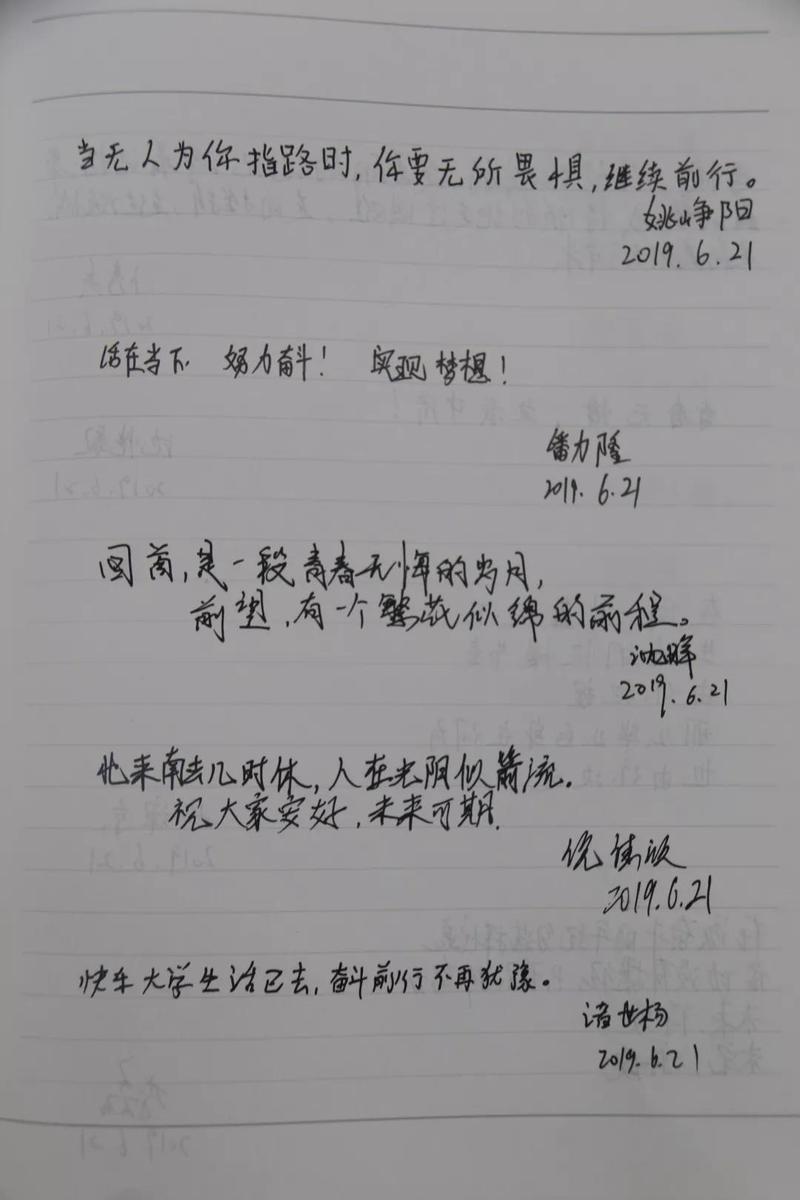 当无人为你指路时,你要无所畏惧,继续前行。
姚峥阳
2019.6.21
活在当下 努力奋斗! 实现梦想!
力隆
2019.6.21
回首,是一段青春无悔的岁月,
前望,有一个繁花似绵的前程。
沈晖
2019.6.21
北来南去几时休,人在光阴似箭流。
祝大家安好,未来可期.
倪
2019.6.21
快乐大学生活已去,奋斗前行不再犹豫。
诸世杨
2019.6.21